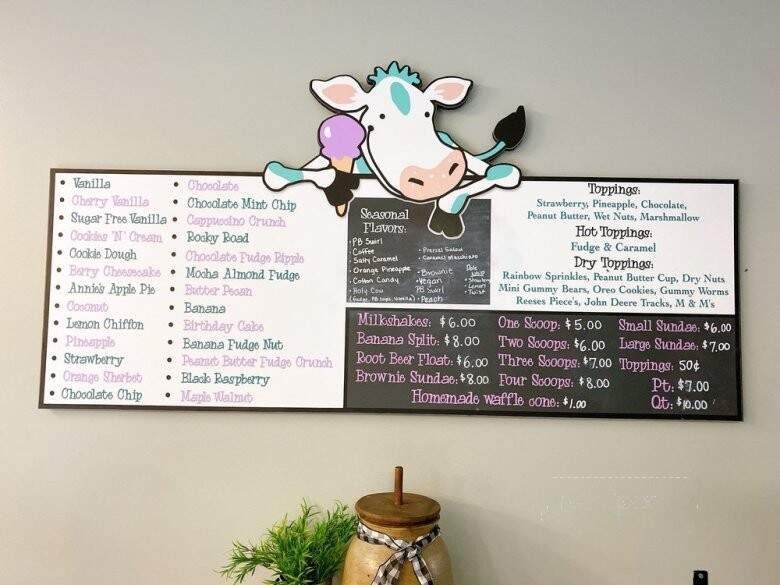 Vanilla
Cherry Vanilla
Sugar Free Vanilla
Cookies 'N' Cream
Cookie Dough
Berry Cheesecake
Annie's Apple Pie
Coconut
Lemon Chiffon
Pineapple
Strawberry
Orange Sherbet
Chocolate Chip
Chocolate
Chocolate Mint Chip
Cappuccino Crunch
Rocky Road
Chocolate Fudge Ripple
Mocha Almond Fudge
Butter Pecan
Banana
Birthday Cake
Banana Fudge Nut
Peanut Butter Fudge Crunch
Black Raspberry
Maple Walnut
Seasonal
Flavors:
PB Swirl
Coffee
Salty Caramel
Orange Pineapple
Cotton Candy
Holy Cow
Caramel Macchiato
Brownut
Vegan
PB Swirl
Peach
Dole
Whip
Lemon
Twist
Toppings:
Strawberry, Pineapple, Chocolate,
Peanut Butter, Wet Nuts, Marshmallow
Hot Toppings:
Fudge & Caramel
Dry Toppings:
Rainbow Sprinkles, Peanut Butter Cup, Dry Nuts
Mini Gummy Bears, Oreo Cookies, Gummy Worms
Reeses Piece's, John Deere Tracks, M & M's
Milkshakes: $6.00
Banana Split: $8.00
Root Beer Float: $6.00
Brownie Sundae: $8.00
One Scoop: $5.00
Two Scoops: $6.00
Three Scoops: $7.00
Four Scoops: $8.00
Small Sundae: $6.00
Large Sundae: $7.00
Toppings: 50¢
Pt: $7.00
Qt: $10.00
Homemade waffle cone: $1.00